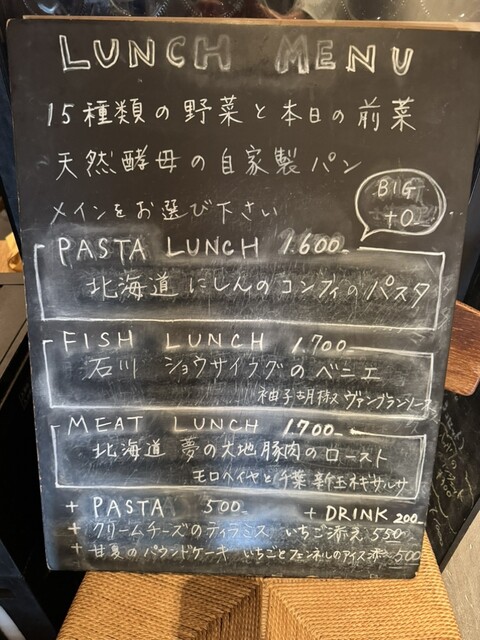 LUNCH MENU
15種類の野菜と本日の前菜
天然酵母の自家製パン
メインをお選び下さい
BIG
+0
PASTA LUNCH 1.600-
北海道 にしんのコンフィのパスタ
FISH LUNCH 1.700-
石川 ショウサイフグのベニエ
柚子胡椒 ヴァンブランソース
MEAT LUNCH 1700-
北海道 夢の大地豚肉のロースト
モロヘイヤと千葉 新玉ネギサルサ
+ PASTA 500- + DRINK 200
+ クリームチーズのティラミス いちご添え 550
+ 甘夏のパウンドケーキ いちごとフェンネルのアイス添 500